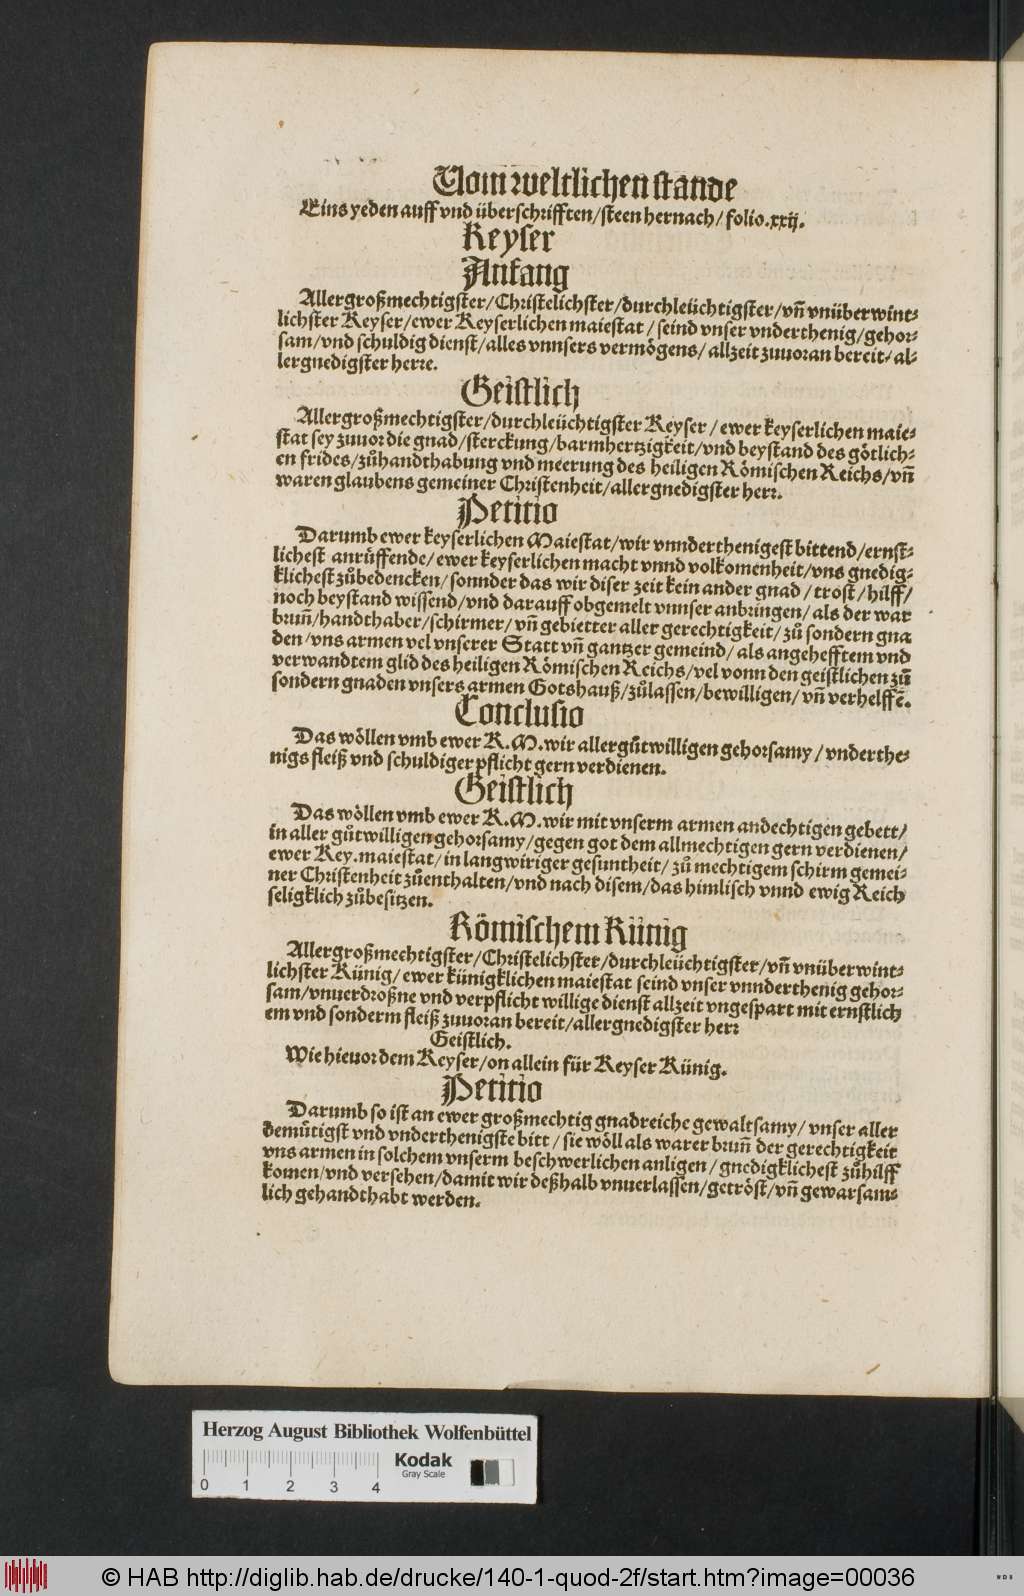 Vom weltlichen stande
Eins yeden auff vnd überschrifften/steen hernach/ folio.xxij.
Keyser
Anfang
Allergroßmechtigster/Christelichster/durchleüchtigster/vn̄ vnüberwint⸗
lichster Keyser/ewer Keyserlichen maiestat / seind vnser vnderthenig/gehor⸗
sam/vnd schuldig dienst/alles vnnsers vermögens/ allzeit zuuoran bereit/ al⸗
lergnedigster herre.
Geistlich
Allergroßmechtigster/durchleüchtigster Keyser / ewer keyserlichen maie⸗
stat sey zuuor die gnad/sterckung/barmhertzigkeit/vnd beystand des götlich⸗
en frides/zůhandthabung vnd meerung des heiligen Römischen Reichs/vn̄
waren glaubens gemeiner Christenheit/allergnedigster herr.
Petitio
Darumb ewer keyserlichen Maiestat/wir vnnderthenigest bittend/ernst⸗
lichest anrůffende/ewer keyserlichen macht vnnd volkomenheit/vns gnedig⸗
klichest zůbedencken/sonnder das wir diser zeit kein ander gnad / trost/hilff/
noch beystand wissend/vnd darauff obgemelt vnnser anbringen/ als der war
brun̄/handthaber/schirmer/ vn̄ gebietter aller gerechtigkeit/ zů sondern gna
den/vns armen vel vnserer Statt vn̄ gantzer gemeind/ als angehefftem vnd
verwandtem glid des heiligen Römischen Reichs/vel vonn den geistlichen zů
sondern gnaden vnsers armen Gotshauß/zůlassen/bewilligen/ vn̄ verhelffē.
Conclusio
Das wöllen vmb ewer K.M.wir allergůtwilligen gehorsamy / vnderthe⸗
nigs fleiß vnd schuldiger pflicht gern verdienen.
Geistlich
Das wöllen vmb ewer K.M.wir mit vnserm armen andechtigen gebett/
in aller gůtwilligen gehorsamy/gegen got dem allmechtigen gern verdienen/
ewer Key.maiestat/in langwiriger gesuntheit/ zů mechtigem schirm gemei⸗
ner Christenheit zůenthalten/vnd nach disem/das himlisch vnnd ewig Reich
seligklich zůbesitzen.
Römischem Künig
Allergroßmechtigster/Christelichster/durchleüchtigster/vn̄ vnüberwint⸗
lichster Künig/ ewer künigklichen maiestat seind vnser vnnderthenig gehor⸗
sam/vnuerdroßne vnd verpflicht willige dienst allzeit vngespart mit ernstlich
em vnd sonderm fleiß zuuoran bereit/allergnedigster herr
Geistlich.
Wie hieuor dem Keyser/on allein für Keyser Künig.
Petitio
Darumb so ist an ewer großmechtig gnadreiche gewaltsamy/ vnser aller
demůtigst vnd vnderthenigste bitt / sie wöll als warer brun̄ der gerechtigkeit
vns armen in solchem vnserm beschwerlichen anligen / gnedigklichest zůhilff
komen/vnd versehen/damit wir deßhalb vnuerlassen/getröst/vn̄ gewarsam⸗
lich gehandthabt werden.
Herzog August Bibliothek Wolfenbüttel
Kodak
Gray Scale
0 1 2 3 4
© HAB http://diglib.hab.de/drucke/140-1-quod-2f/start.htm?image=00036